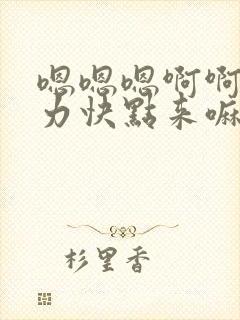 嗯嗯嗯啊啊
力快點來嘛
杉里香